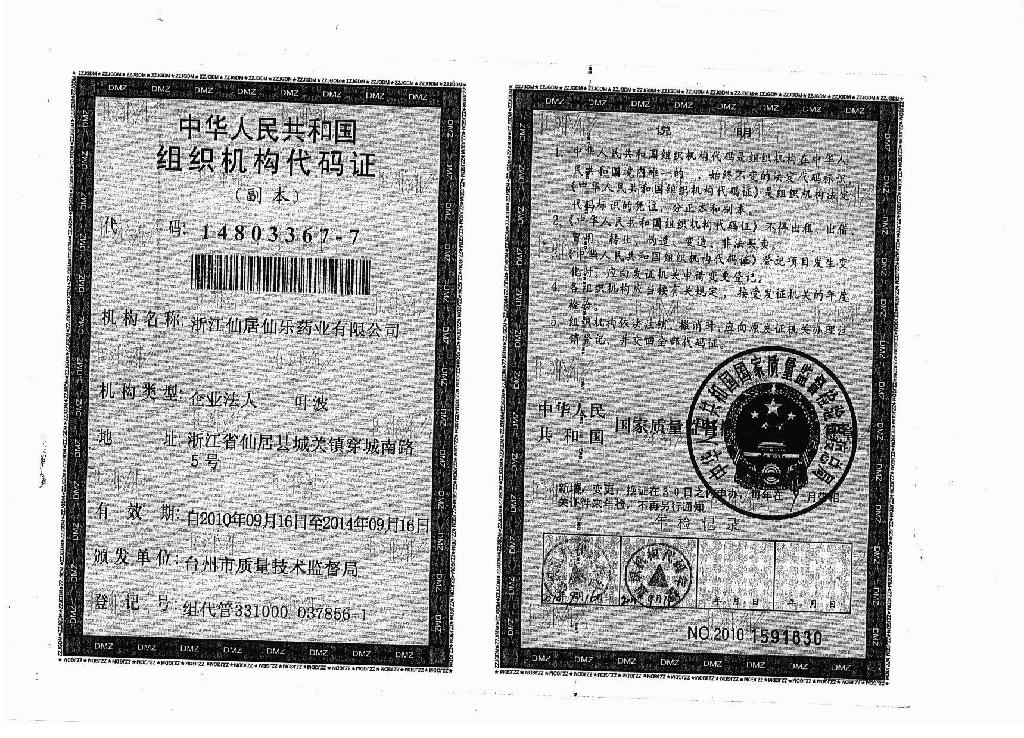 中华人民共和国
组织机构代码证
(副本)
代 码: 14803367-7
机构名称: 浙江仙居仙乐药业有限公司
机构类型: 企业法人 叶波
地 址: 浙江省仙居县城关镇穿城南路
5号
有 效 期: 自2010年09月16日至2014年09月16日
颁发单位: 台州市质量技术监督局
登 记 号: 组代管331000 037856-1
说 明
1. 中华人民共和国组织机构代码是组织机构在中华人
民共和国境内唯一的、始终不变的法定代码标识,
《中华人民共和国组织机构代码证》是组织机构法定
代码标识的凭证,分正本和副本。
2. 《中华人民共和国组织机构代码证》不得出租、出借、
冒用、转让、伪造、变造、非法买卖。
3. 《中华人民共和国组织机构代码证》登记项目发生变
化时,应向发证机关申请变更登记。
4. 各组织机构应当按有关规定,接受发证机关的年度
检验。
5. 组织机构依法注销、撤消时,应向原发证机关办理注
销登记,并交回全部代码证。
中华人民
共和国 国家质量
中华人民共和国国家质量监督检验检疫总局
年检记录
年 月 日 年 月 日
NO.2010 1591830
DMZ